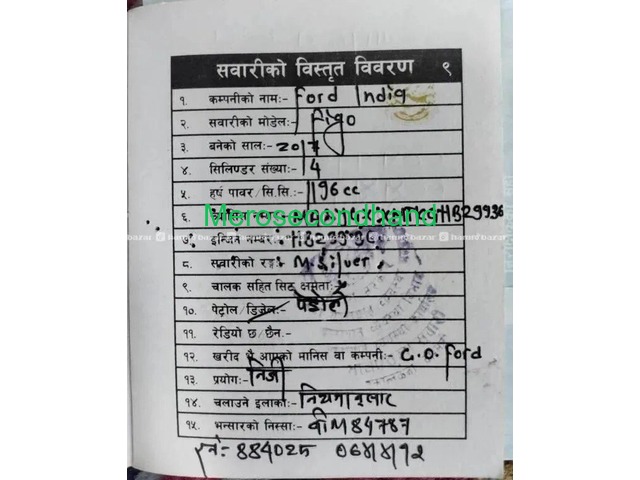 सवारीको विस्तृत विवरण ९
१. कम्पनीको नामः- Ford India
२. सवारीको मोडेलः- Figo
३. बनेको सालः- 2017
४. सिलिण्डर संख्याः- 4
५. हर्ष पावर/सि.सिः- 1196cc
६. HB29936
Merosecondhand
hamrobazar hamrobazar
७. इन्जिन नम्बरः HB29936
८. सवारीको रङ्गः M. Silver
९. चालक सहित सिट क्षमताः
१०. पेट्रोल/डिजेलः- पेट्रोल
११. रेडियो छ/छैनः-
१२. खरीद गरी आएको मानिस वा कम्पनीः- C.O. Ford
१३. प्रयोगः- निजी
१४. चलाउने इलाकाः- नियमानुसार
१५. भन्सारको निस्साः- वीM84787
884025